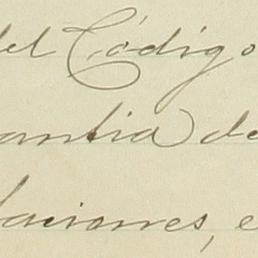 del Código
antia de
laciones, e